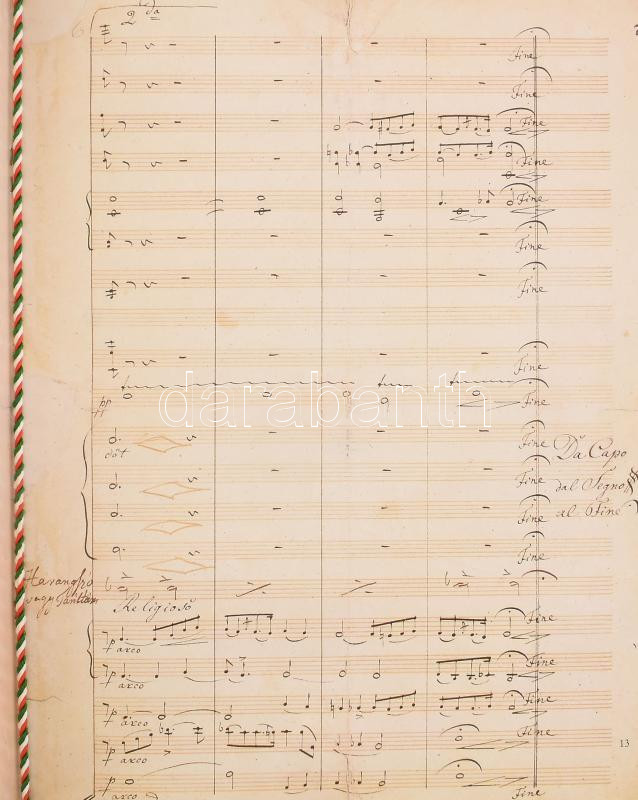 2da
Fine
Fine
Fine
Fine
Fine
Fine
Fine
Fine
pp
Fine
darabanth
Fine
Fine
Fine
Fine
Da Capo
dal Segno
al Fine
Harangszó
vagy
Religioso
p arco
Fine
p arco
Fine
p arco
Fine
p arco
Fine
p arco
Fine
13